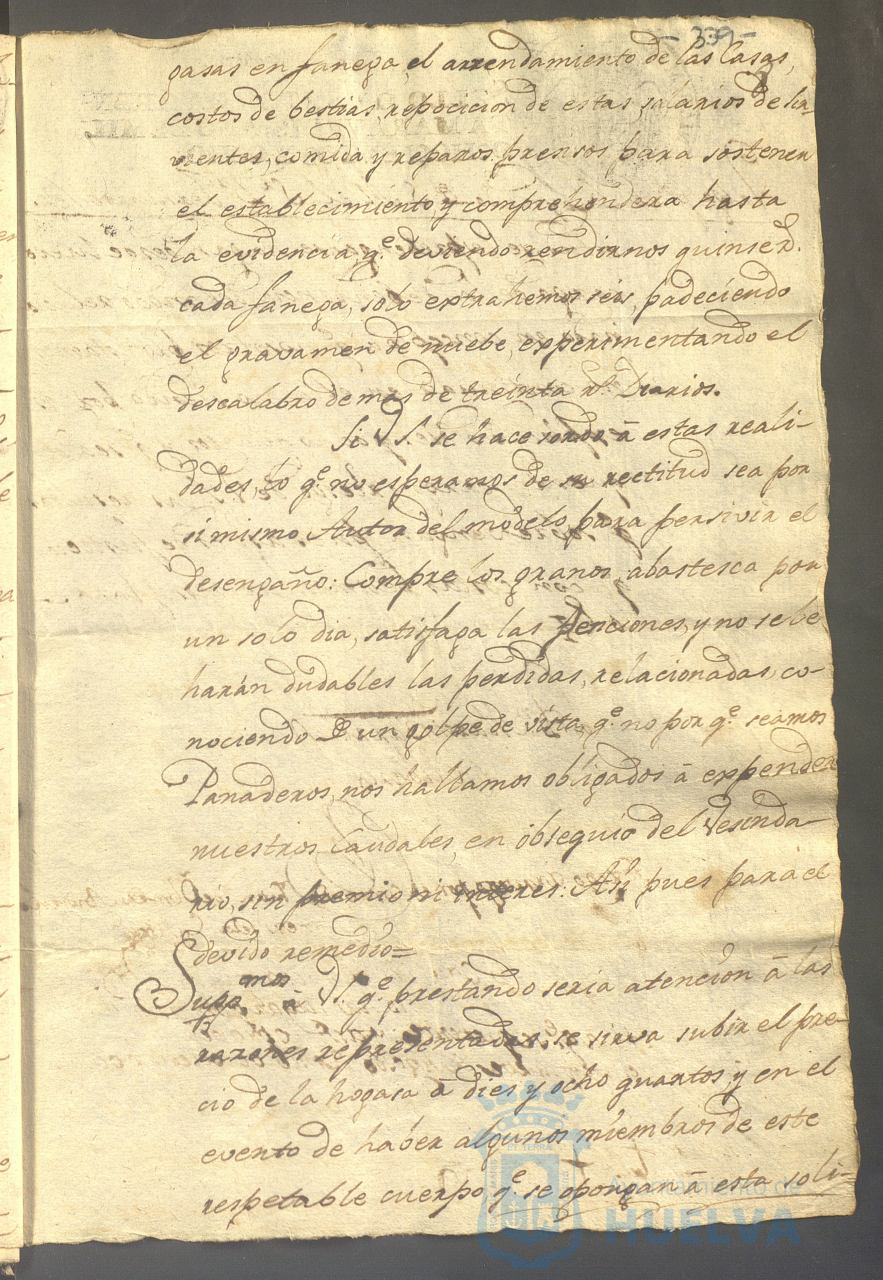 - 339 -
gasas en fanega, el arrendamiento de las Casas,
costos de bestias, repocicion de estas, salarios de sir-
vientes, comida y reparos prensos para sostener
el establecimiento, y comprehendera hasta
la evidencia, q.e deviendo rendirnos quinse rs.
cada fanega, solo extrahemos seis, padeciendo
el gravamen de nuebe, experimentando el
descalabro de mas de treinta rs. Diarios.
Si V.S. se hace sordo â estas reali-
dades, lo q.e no esperamos de su rectitud sea por
si mismo Autor del modelo, para persivir el
desengaño: Compre los granos, abastesca por
un solo dia, satisfaga las penciones, y no se le
harán dudables las perdidas, relacionadas, co-
nociendo de un golpe de vista, q.e no por q.e seamos
Panaderos, nos hallamos obligados â expender
nuestros Caudales, en obsequio del Vesinda-
rio, sin premio ni interes: Asi pues para el
devido remedio=
Supp.mos â V.S. q.e prestando seria atencion â las
razones representadas, se sirva subir el pre-
cio de la hogasa â dies y ocho quartos, y en el
evento de haber algunos miembros de este
respetable cuerpo q.e se opongan â esta soli-
Ayuntamiento de
HUELVA